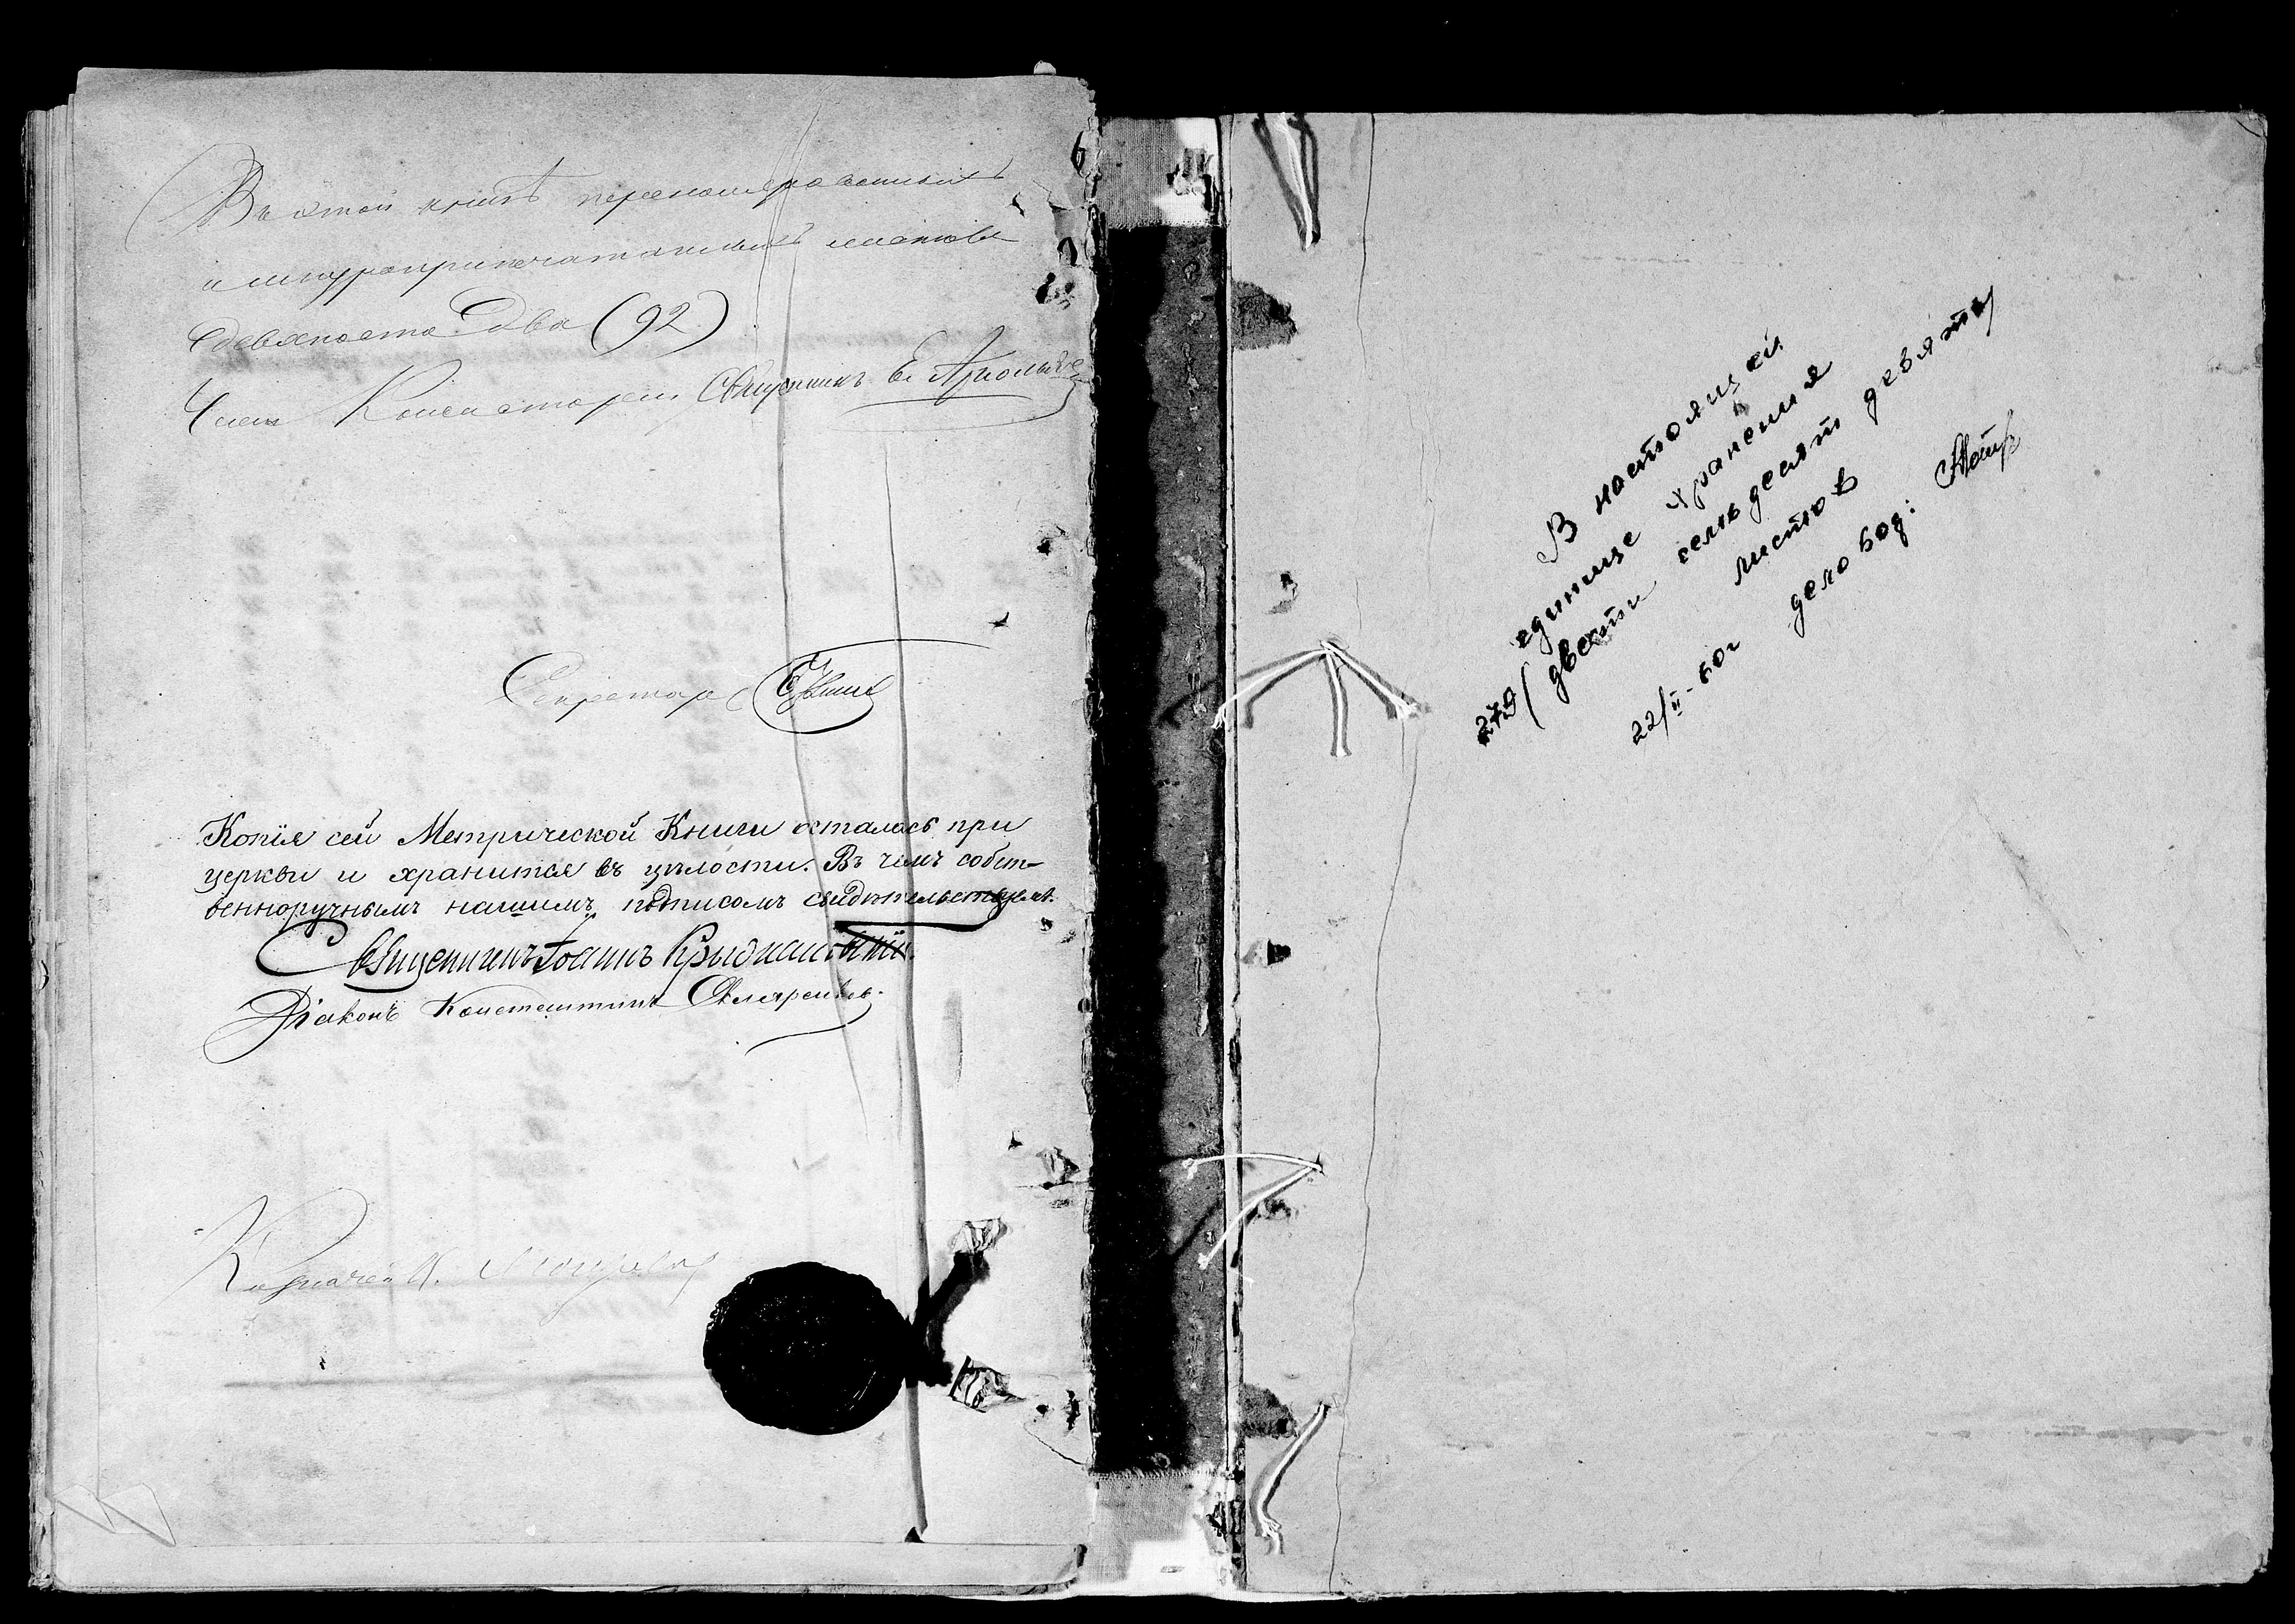 Въ этой книгѣ перенумерованныхъ
и шнуроприпечатанныхъ листовъ
девяносто два (92)
Членъ Консисторіи, Священникъ Е.
Секретарь
Копія сей Метрической Книги осталась при
церкви и хранится въ цѣлости. Въ чемъ собст-
венноручнымъ нашимъ подписомъ свидѣтельствуемъ.
Священникъ Іоаннъ
Діаконъ Константинъ
Казначей
В настоящей
единице хранения
279 (двести семьдесят девять)
листов
22/II-60г дело